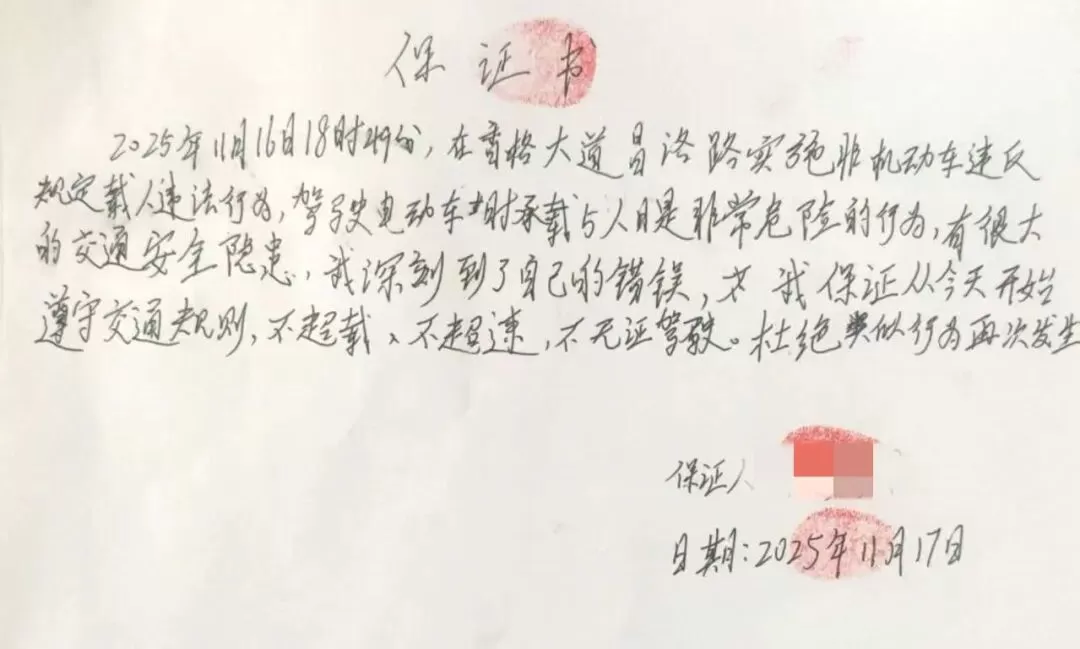 保证书
2025年11月16日18时49分,在香格大道昌洛路实施非机动车违反
规定载人违法行为,驾驶电动车时承载与人是非常危险的行为,有很大
的交通安全隐患,我深刻到了自己的错误,我保证从今天开始
遵守交通规则,不超载、不超速,不无证驾驶。杜绝类似行为再次发生
保证人
日期:2025年11月17日